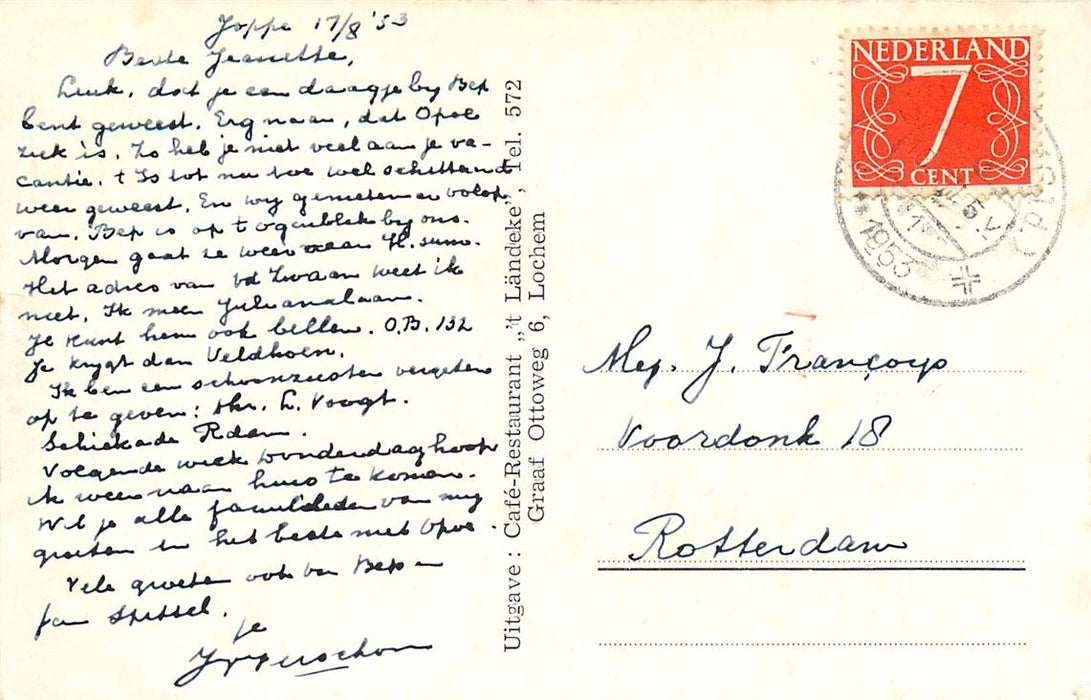 Joppe 17/8 '53
Beste Jeanette,
Leuk, dat je een daagje by Bep
bent geweest. Erg naar, dat Opoe
ziek is. Zo heb je niet veel aan je va-
cantie. 't Is tot nu toe wel schitterend
weer geweest. En wy genieten er volop
van. Bep is op 't ogenblik by ons.
Morgen gaat ze weer naar H.sum.
Het adres van vd Zwaan weet ik
niet. Ik meen Julianalaan.
Je kunt hem ook bellen. O.B. 132
Je krygt dan Veldhoen.
Ik ben een schoonzuster vergeten
op te geven: Mr. L. Voogt.
Schiekade Rdam.
Volgende week Donderdag hoop
ik weer naar huis te komen.
Wil je alle familieleden van my
groeten en het beste met Opoe.
Vele groeten ook van Bep en
fam
je
Uitgave: Café-Restaurant „'t Ländeke", Tel. 572
Graaf Ottoweg 6, Lochem
NEDERLAND
7
CENT
1953
Mej. J. Françoys
Voordonk 18
Rotterdam